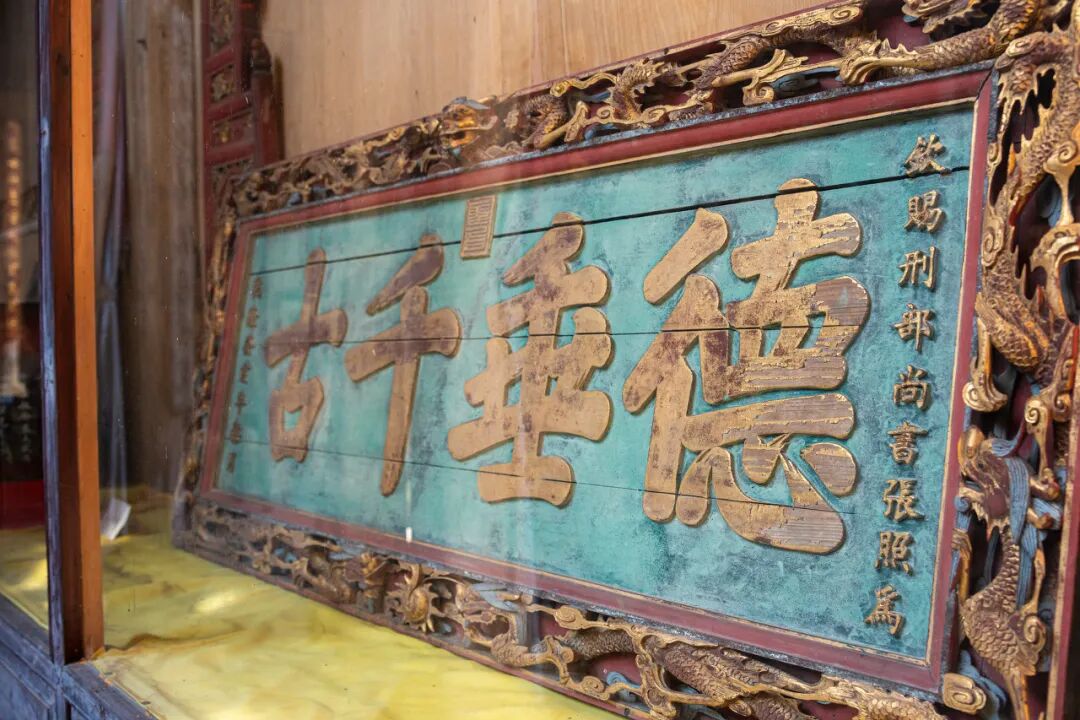 欽賜刑部尚書張照為
德垂千古